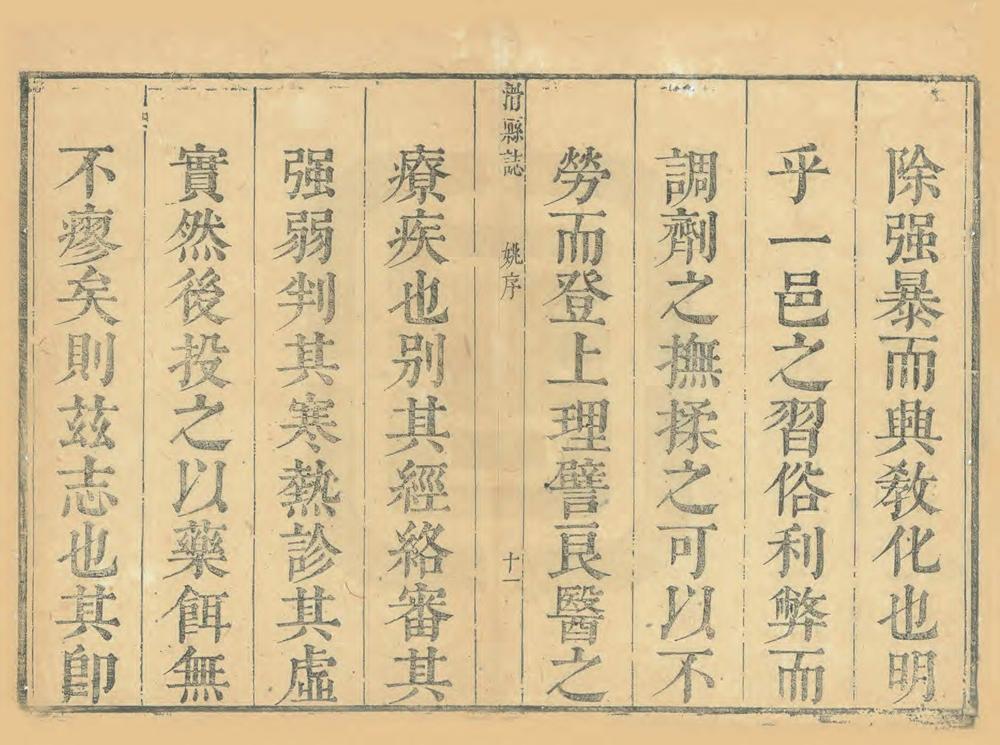 除强暴而興教化也明
乎一邑之習俗利弊而
調劑之撫揉之可以不
勞而登上理譬良醫之
滑縣誌 姚序 十一
療疾也别其經絡審其
强弱判其寒熱診其虛
實然後投之以藥餌無
不瘳矣則茲志也其卽